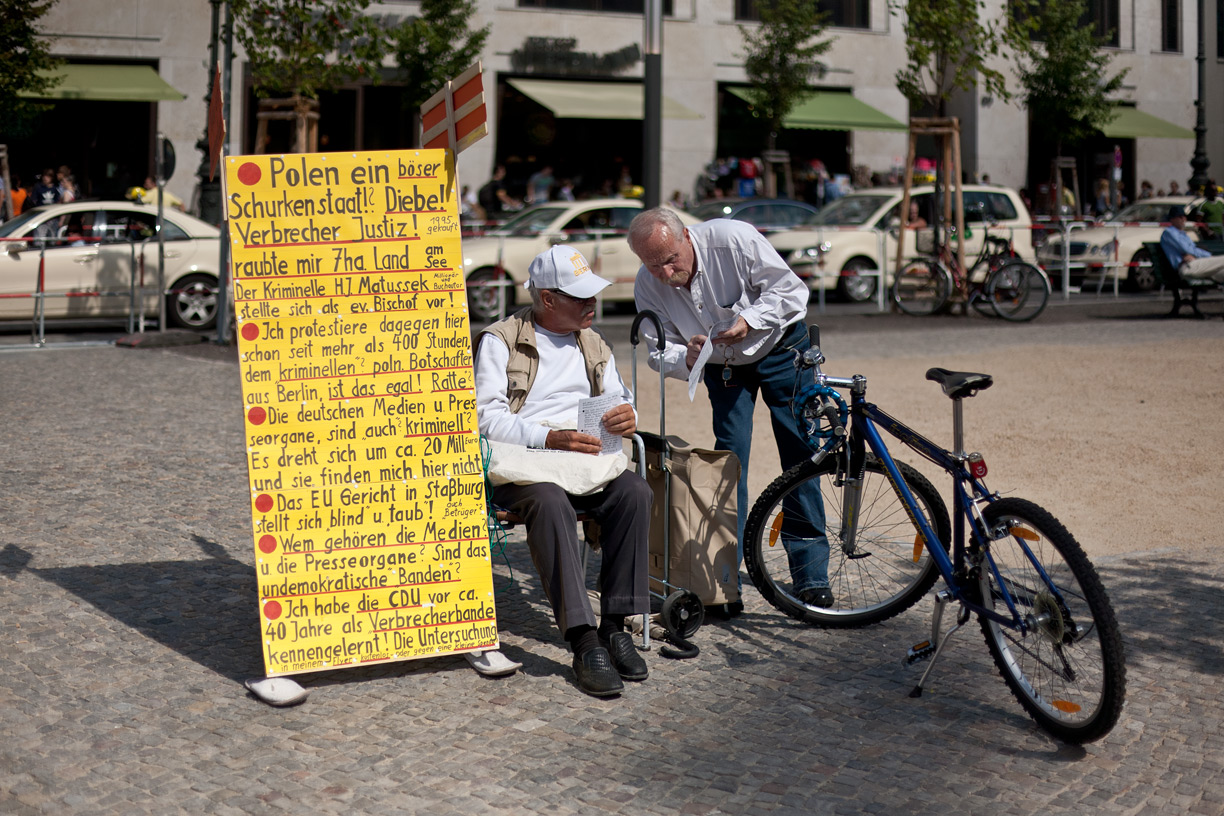 Polen ein böser
Schurkenstaat? Diebe!
Verbrecher Justiz! 1995 gekauft
raubte mir 7ha. Land am See
Der Kriminelle HJ Matussek Millionär und Buchautor
stellte sich als ev. Bischof vor!
Ich protestiere dagegen hier
schon seit mehr als 400 Stunden,
dem kriminellen? poln. Botschafter
aus Berlin, ist das egal! Ratte?
Die deutschen Medien u. Pres
seorgane, sind "auch? kriminell"?
Es dreht sich um ca. 20 Mill Euro
und sie finden mich hier nicht
Das EU Gericht in Staßburg
stellt sich blind u. taub! auch Betrüger?
Wem gehören die Medien?
u. die Presseorgane? Sind das
undemokratische "Banden"?
Ich habe die CDU vor ca.
40 Jahre als Verbrecherbande
kennengelernt! Die Untersuchung
in meinem Flyer kostenlos, oder gegen eine kleine Spende